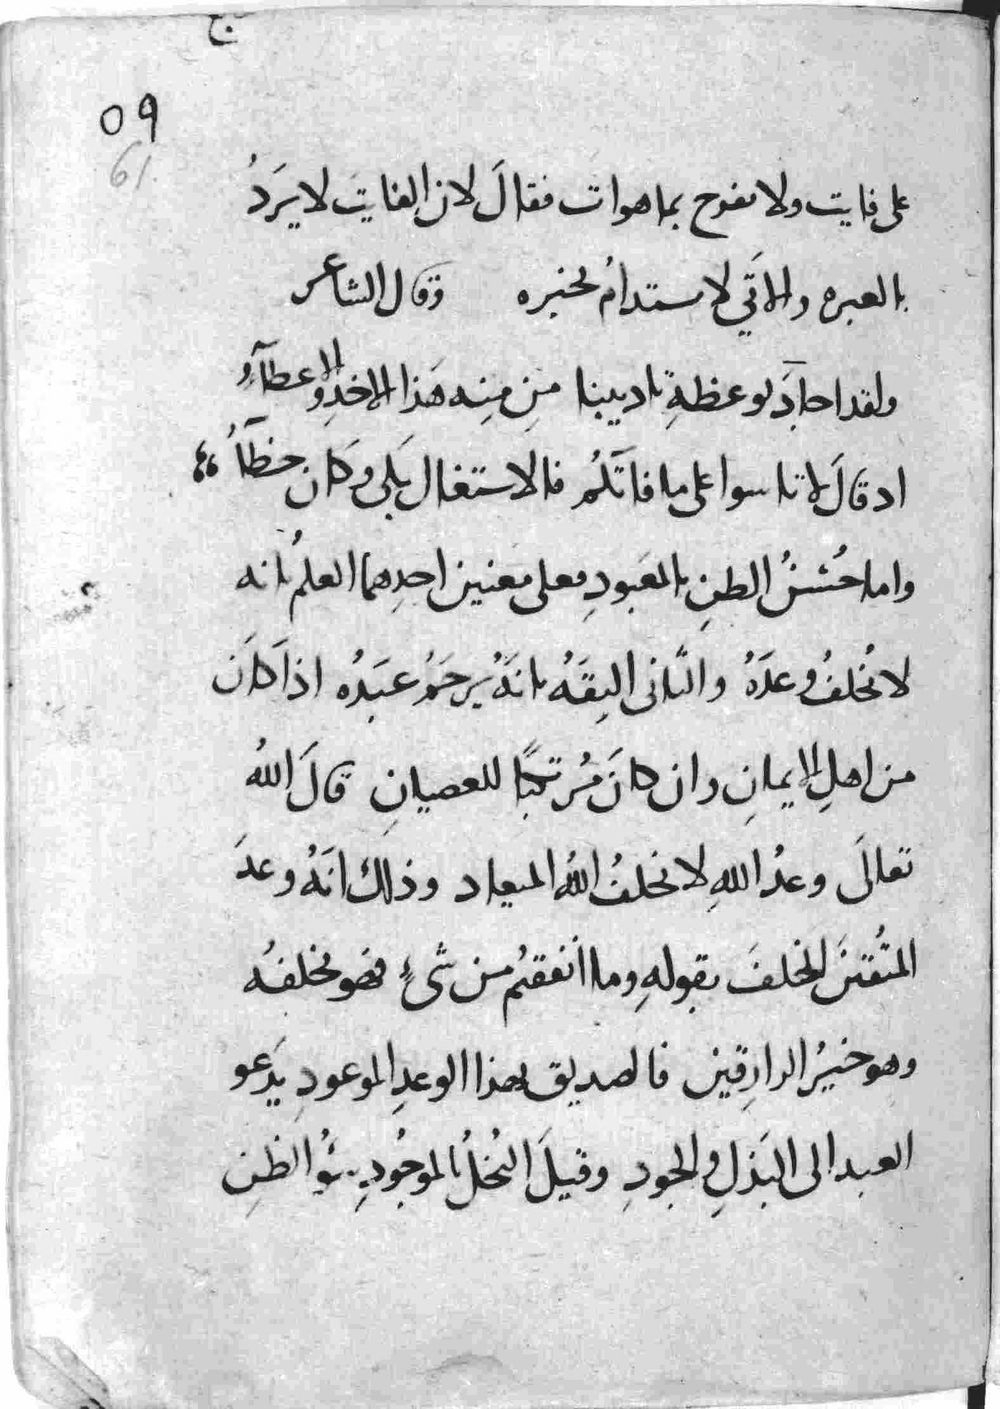 ع
٥٩
61
على فايت ولا تفرح بما هو ات فقالَ لان الفايتَ لا يرَدُ
بالعبره والاتي لا يستدامُ بخبره وقال الشاعر
ولقد اجاد بوعظةٍ تاديبنا مِن مِنِه هَذا الاخذِ والاعطآءِ
اد قالَ لا تاسوا على ما فاتَكُم فالاستغال بَلى وكان خطآءُ
واما حُسْنُ الظنِ بالمعَبودِ فعلى مَعنين احدِهما العلمُ بانه
لا يُخلفُ وعدَهُ والثانى الثِقَهُ بانهُ يرحَمُ عَبدُه اذا كانَ
من اهلِ الإيمانِ وان كانَ مُرتكبًا للعصيانِ قالَ اللهُ
تعالى وعدُ اللهِ لا يخلفُ اللهُ الميعاد وذلك انهُ وعدَ
المنُفقينَ الخلفَ بقولهِ وما انفقتُم من شىءٍ فهو يخلفُه
وهو خيرُ الرازقين فالصديق بهذا الوعدِ الموعودِ يدَعو
العبد الى البَذلِ والجودِ وقيلَ البُخلُ بالموجُودِ سُوُ الظنِ